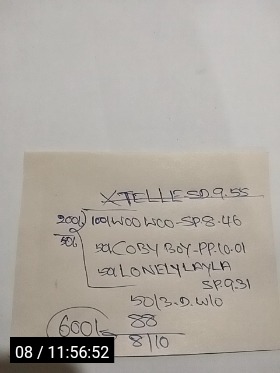 XTELLIE-SD.9.55
200/- 100/WOO WOO-SP.8-46
50/- 50/COBY BOY-PP.10.01
50/LONELY LAYLA
SP.9.31
50/3.D.W/O
88
600/-
8/10
08 / 11:56:52